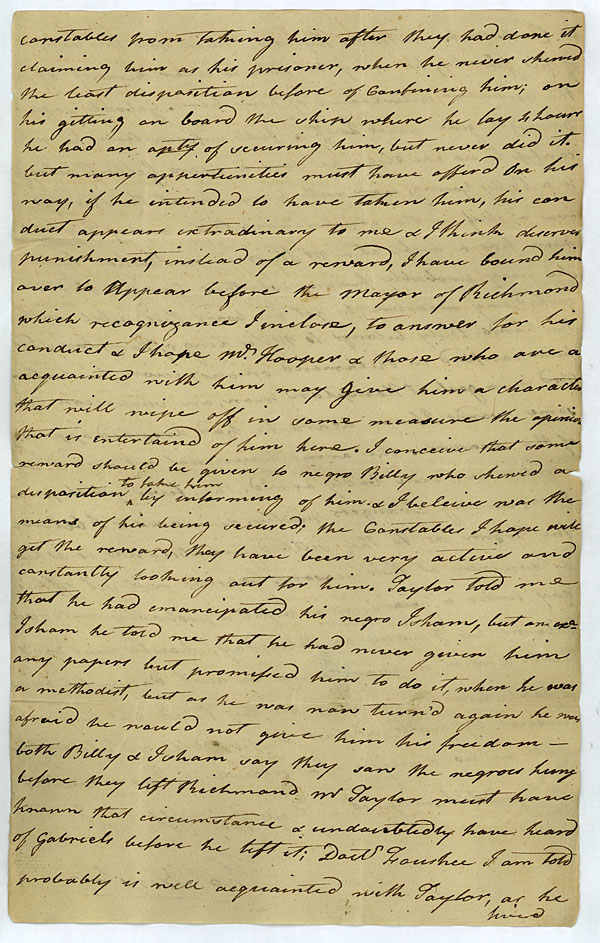 constables from taking him after they had done it
claiming him as his prisoner, when he never shewed
the least disposition before of Confining him; on
his gitting on board the ship where he lay 4 hours
he had an opty of securing him, but never did it.
but many oppertunities must have afferd on his
way, if he intended to have taken him, his con
duct appears extradinary to me & I think deserves
punishment, instead of a reward, I have bound him
over to Appear before the Mayor of Richmond
which recognizance I inclose, to answer for his
conduct & I hope Mr. Hooper & those who are a
acquainted with him may give him a character
that will wipe off in some measure the opinion
that is entertaind of him here. I conceive that some
reward should be given to negro Billy who shewed a
disposition to take him by informing of him. & I beleive was the
means of his being secured; the Constables I hope will
get the reward, they have been very active and
constantly looking out for him. Taylor told me
that he had emancipated his negro Isham, but on exn.
Isham he told me that he had never given him
any papers but promissed him to do it, when he was
a methodist, but as he was now turn'd again he was
afraid he would not give him his freedom —
both Billy & Isham say they saw the negroes hung
before they left Richmond Mr Taylor must have
known that circumstance & undoubtedly have heard
of Gabriels before he left it; Doctr. Foushee I am told
probably is well acquainted with Taylor, as he
lived